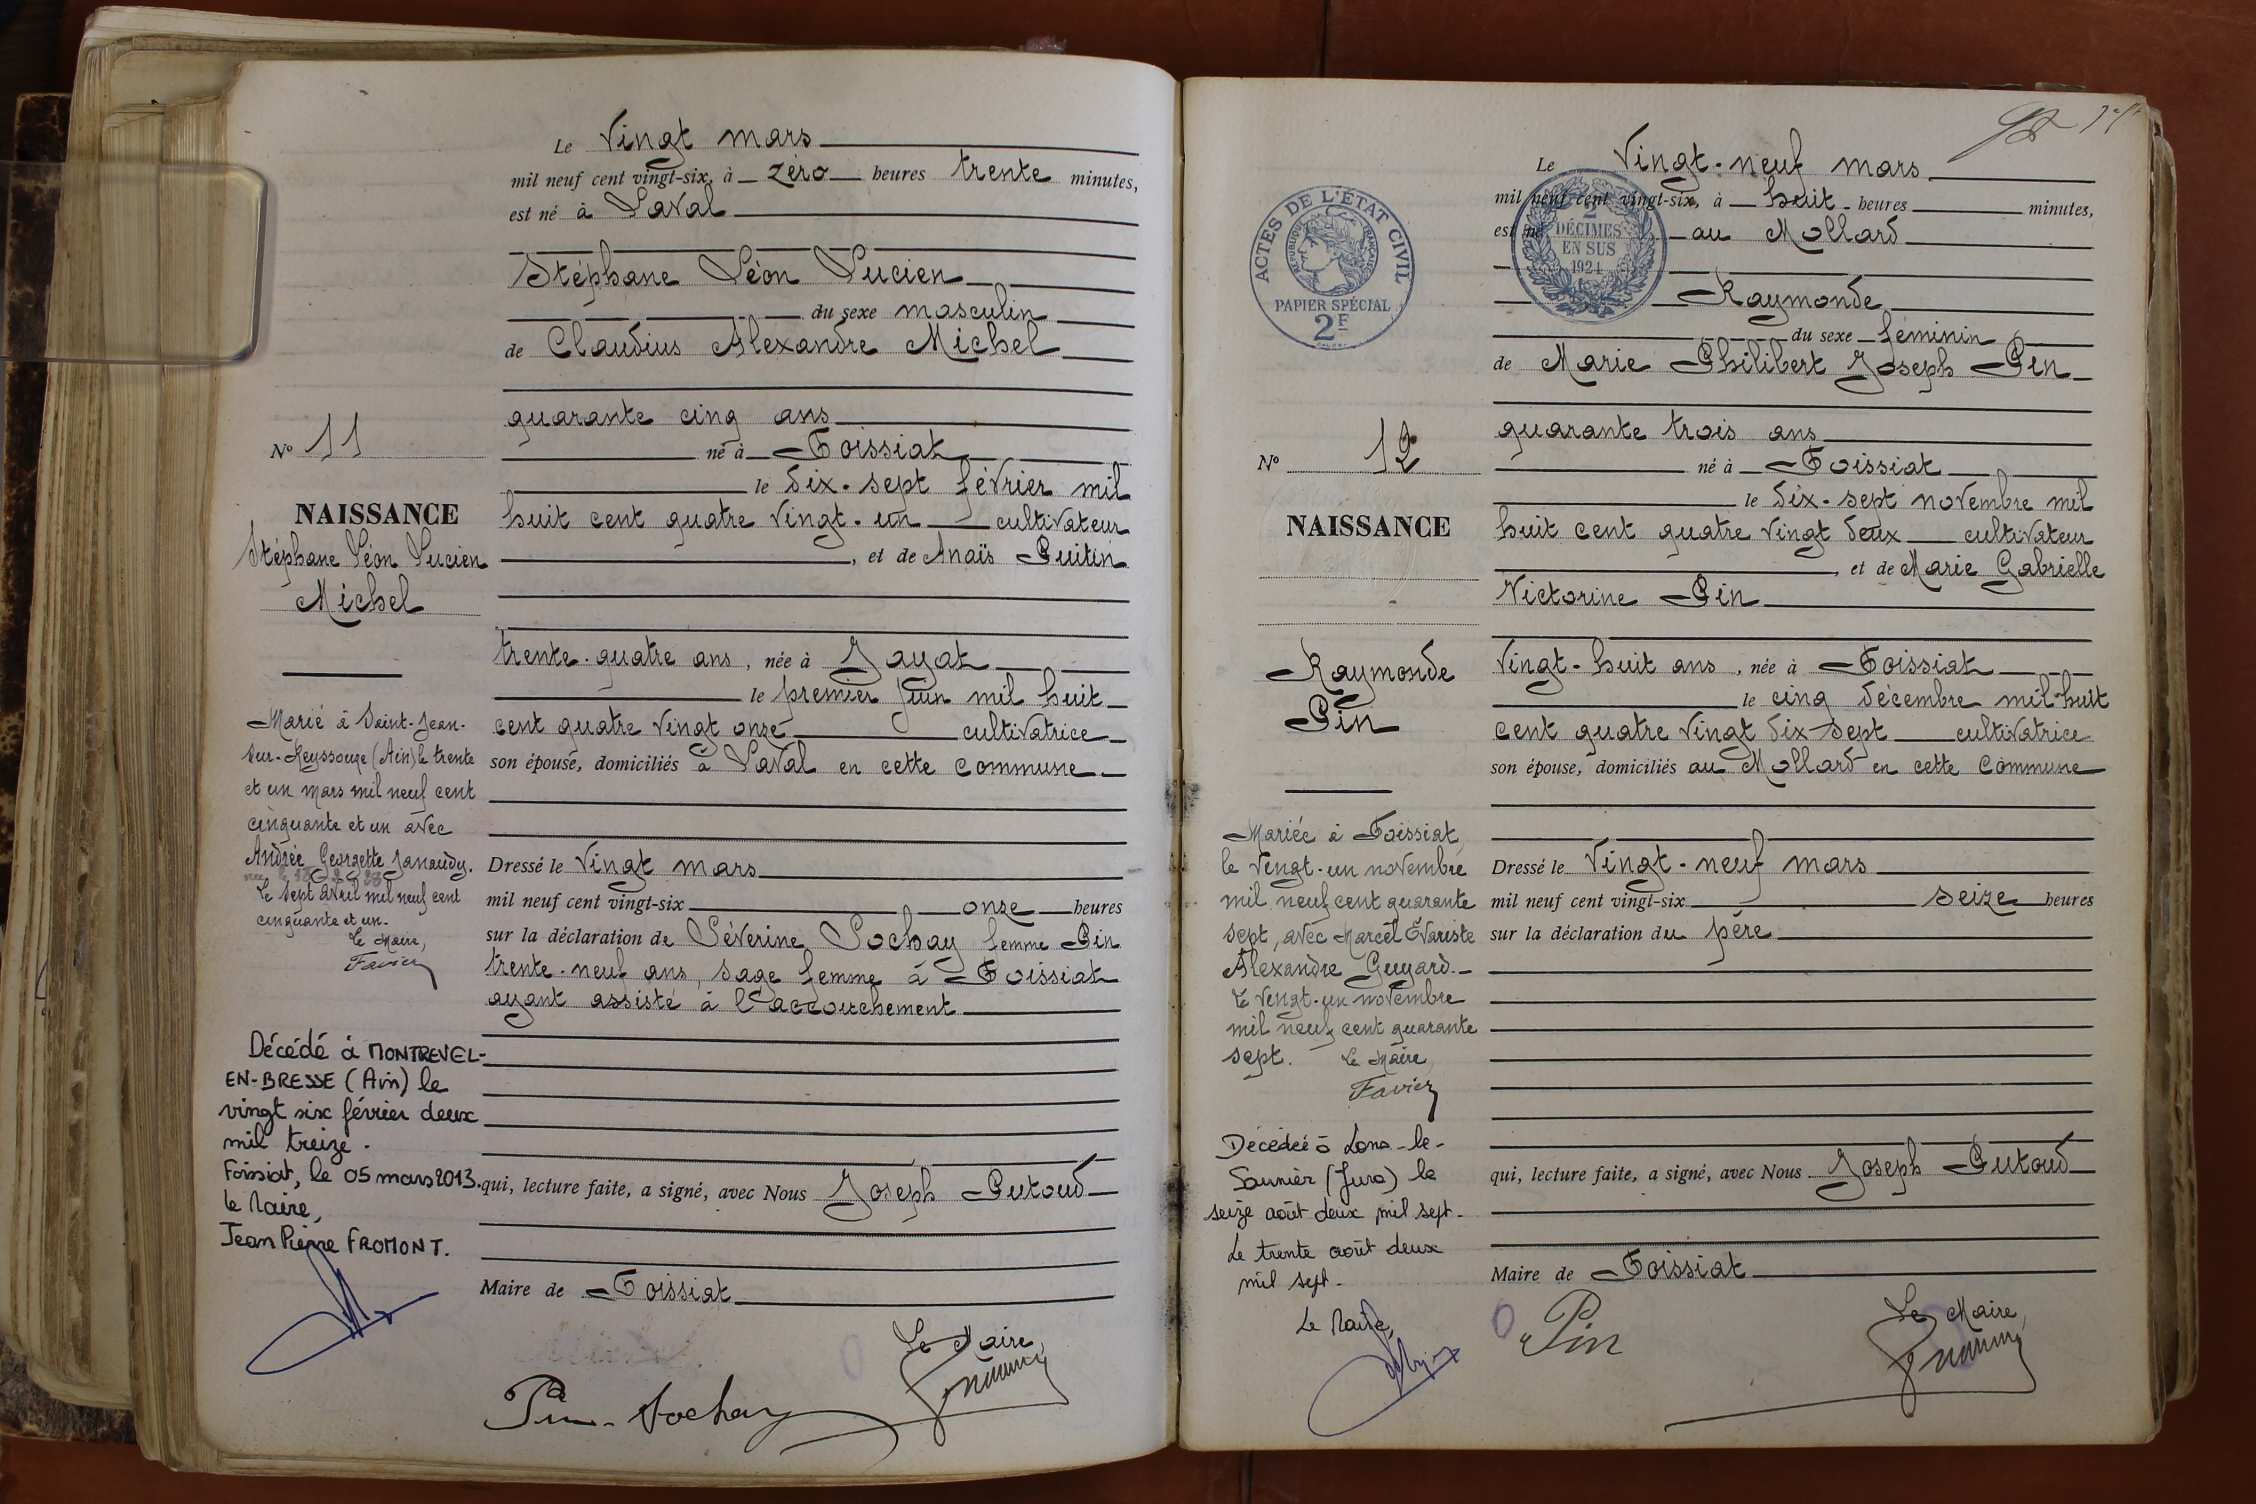 Le Vingt mars
mil neuf cent vingt-six, à zéro heures trente minutes,
est né à Laval
Stéphane Léon Lucien
du sexe masculin
de Claudius Alexandre Michel
quarante cinq ans
né à Foissiat
le dix-sept février mil
huit cent quatre vingt-un cultivateur
, et de Anaïs Guitin
trente-quatre ans, née à Jayat
le premier juin mil huit
cent quatre vingt onze cultivatrice
son épouse, domiciliés à Laval en cette commune
Dressé le Vingt mars
mil neuf cent vingt-six onze heures
sur la déclaration de Séverine Sochay femme Pin
trente-neuf ans, sage femme à Foissiat
ayant assisté à l'accouchement
qui, lecture faite, a signé, avec Nous Joseph
Maire de Foissiat
Le Maire,
Pin-Sochay
No 11
NAISSANCE
Stéphane Léon Lucien
Michel
Marié à Saint-Jean-
sur-Reyssouze (Ain) le trente
et un mars mil neuf cent
cinquante et un avec
Andrée Georgette Janaudy.
Le sept avril mil neuf cent
cinquante et un.
Le Maire,
Favier
Décédé à MONTREVEL-
EN-BRESSE (Ain) le
vingt six février deux
mil treize.
Foissiat, le 05 mars 2013.
Le Maire,
Jean Pierre FROMONT.
ACTES DE L'ÉTAT CIVIL
RÉPUBLIQUE FRANÇAISE
PAPIER SPÉCIAL
2F
2
DÉCIMES
EN SUS
1924
Le Vingt-neuf mars
mil neuf cent vingt-six, à huit heures minutes,
est né au Mollard
Raymonde
du sexe féminin
de Marie Philibert Joseph Pin
quarante trois ans
né à Foissiat
le dix-sept novembre mil
huit cent quatre vingt deux cultivateur
, et de Marie Gabrielle
Victorine Pin
Vingt-huit ans, née à Foissiat
le cinq décembre mil huit
cent quatre vingt dix-sept cultivatrice
son épouse, domiciliés au Mollard en cette commune
Dressé le Vingt-neuf mars
mil neuf cent vingt-six seize heures
sur la déclaration du père
qui, lecture faite, a signé, avec Nous Joseph
Maire de Foissiat
Le Maire,
Pin
No 12
NAISSANCE
Raymonde
Pin
Mariée à Foissiat
le vingt-un novembre
mil neuf cent quarante
sept, avec Marcel Évariste
Alexandre Guyard.
Le vingt-un novembre
mil neuf cent quarante
sept. Le Maire,
Favier
Décédée à Lons-le-
Saunier (Jura) le
seize août deux mil sept.
Le trente août deux
mil sept.
Le Maire,